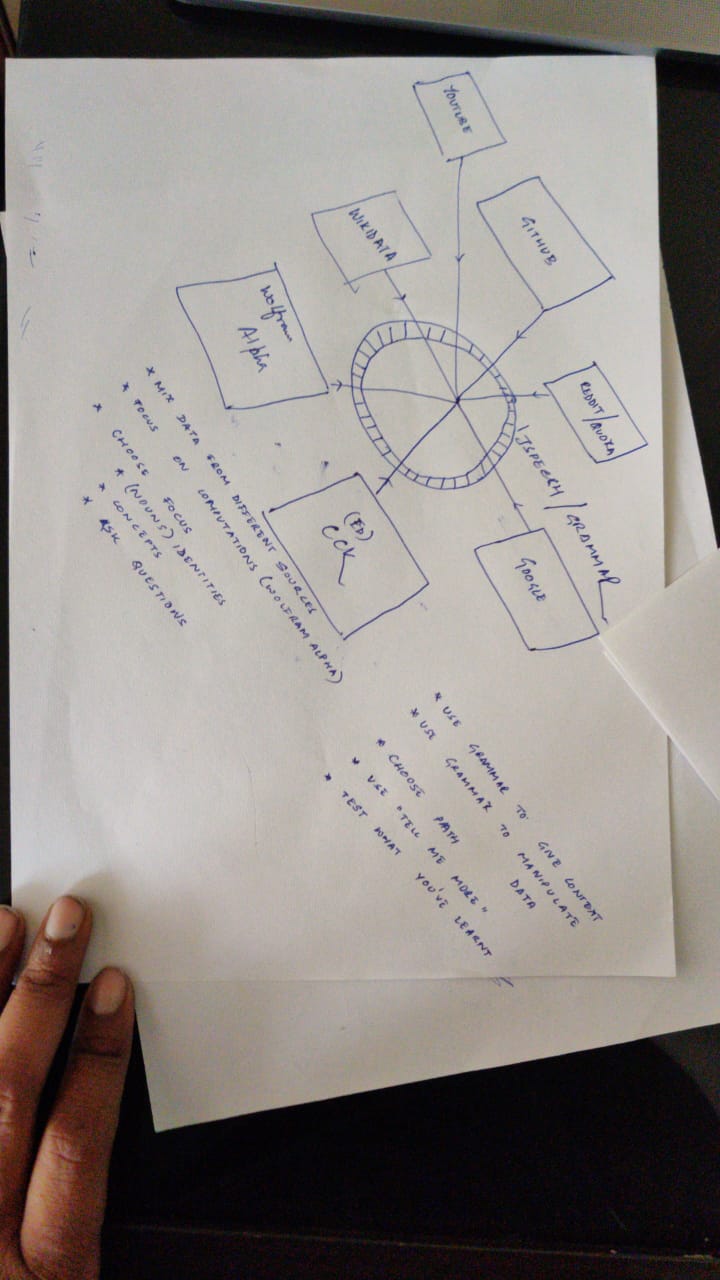 YOUTUBE
GITHUB
WIKIDATA
Wolfram
Alpha
REDDIT/QUORA
SPEECH/GRAMMAR
GOOGLE
(ED)
CCK
* MIX DATA FROM DIFFERENT SOURCES
* FOCUS ON COMPUTATIONS (WOLFRAM ALPHA)
* CHOOSE FOCUS
* (NOUNS) IDENTITIES
* CONCEPTS
* ASK QUESTIONS
* USE GRAMMAR TO GIVE CONTEXT
* USE GRAMMAR TO MANIPULATE DATA
* CHOOSE PATH
* USE "TELL ME MORE"
* TEST WHAT YOU'VE LEARNT